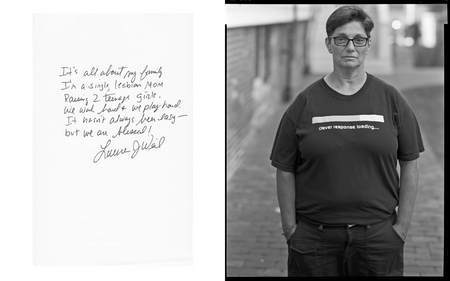 It's all about my family
I'm a single, lesbian mom
Raising 2 teenage girls.
We work hard & we play hard
It hasn't always been easy—
but we are blessed!
clever response loading...